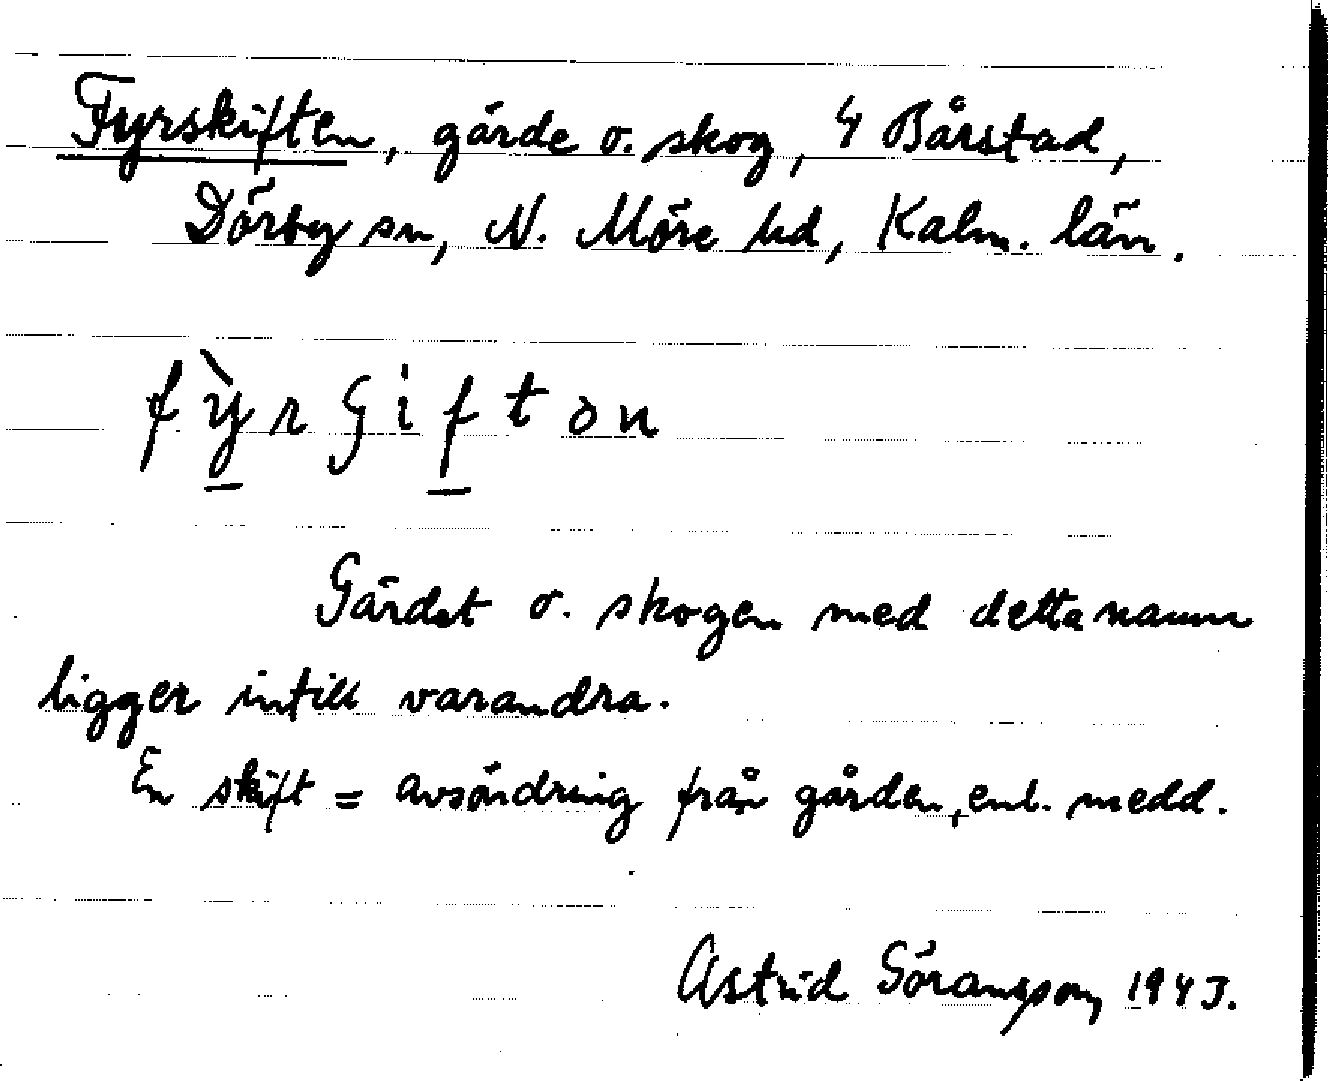 Fyrskiften, gärde o. skog, 4 Bårstad,
Dörby sn, N. Möre hd, Kalm. län.
fỳrʃifton
Gärdet o. skogen med detta namn
ligger intill varandra.
En skift = avsöndring från gården, enl. medd.
Astrid Göransson 1943.